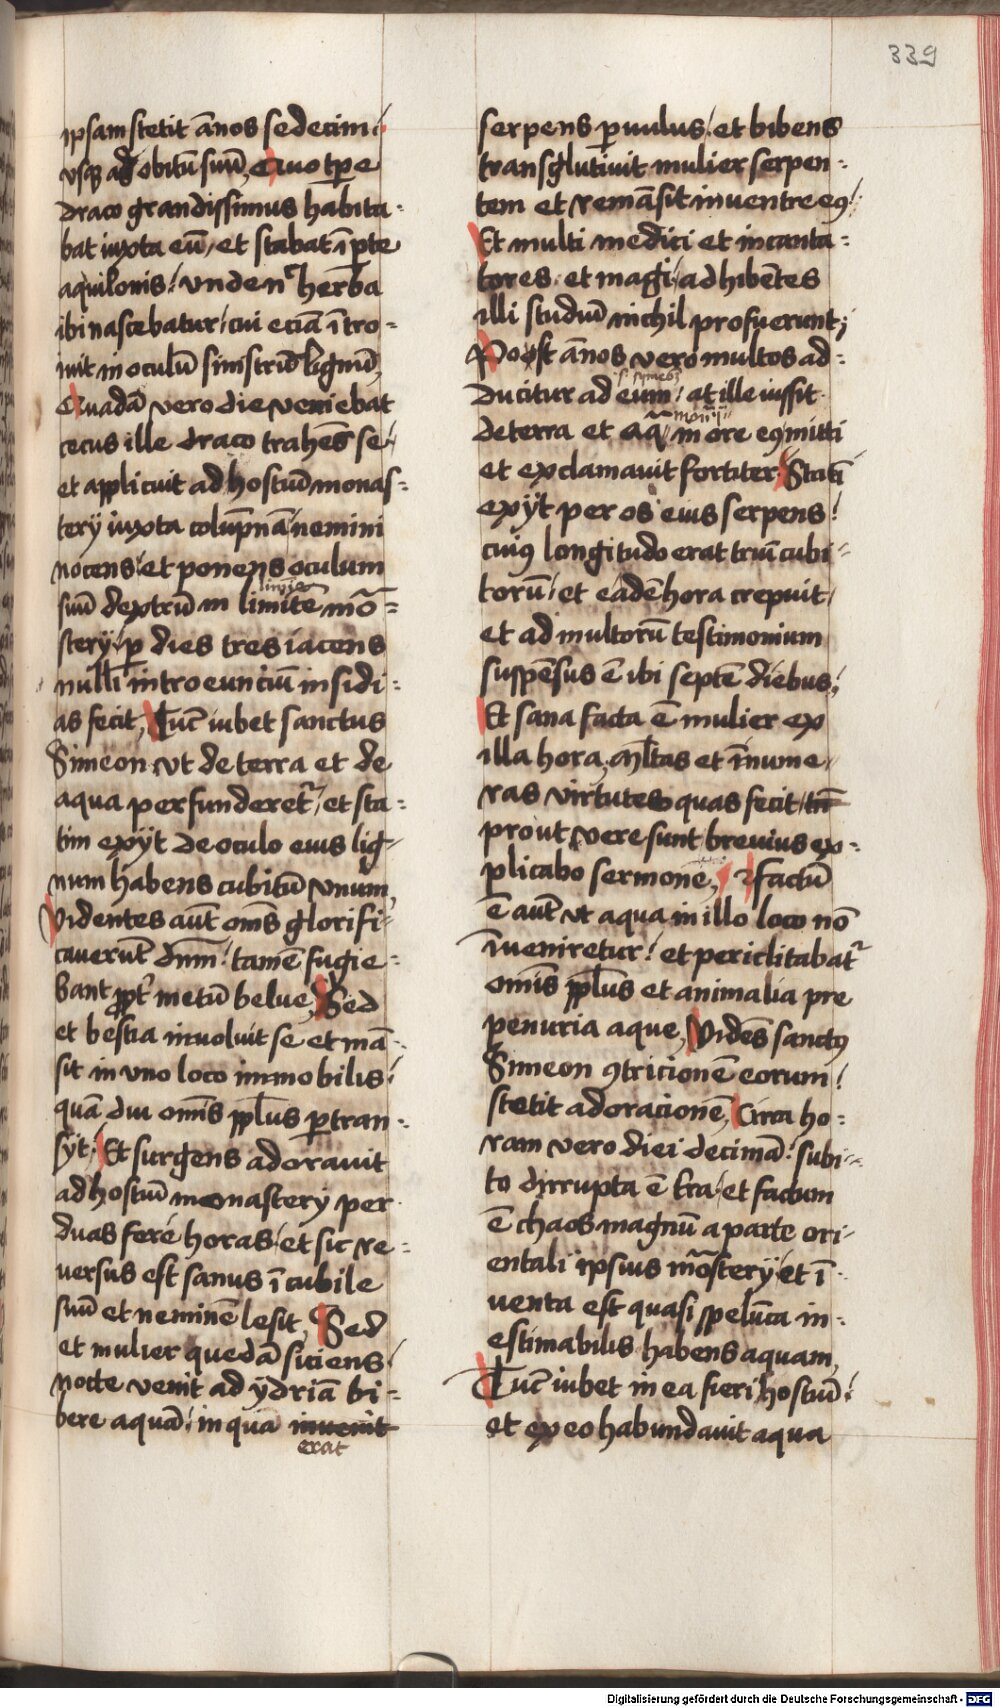 339
ipsam stetit ānos sedecim
vsqꝫ ad obitū suū, Quo tꝑe
draco grandissimus habita-
bat iuxta eū, et stabat ī ꝑte
aquilonis, vnde nͨ herba
ibi nascebatur, cui eciā ī tro-
iuit in oculū sinistrū lignū,
Quadā vero die veniebat
cecus ille draco trahēs se
et applicuit ad hostiū monas-
terÿ iuxta colūpnā, nemini
nocens, et ponens oculum
suū dextrū in limitē mō-
sterÿ, ꝑ dies tres iacens
nulli introeunciū insidi-
as fecit, Tūc iubet sanctus
Simeon vt de terra et de
aqua perfunderet᷑, et sta-
tim exÿt de oculo eius lig-
num habens cubitū vnum,
Videntes aūt om̄s glorifi-
cauerūt dn̄m, tamē fugie-
bant ꝓpt᷑ metū belue, Sed
et bestia inuoluit se et mā-
sit in vno loco immobilis
quā diu om̄is ppl̄us ꝑtran-
sÿt, Et surgens adorauit
ad hostiū monasterÿ per
duas fere horas, et sic re-
uersus est sanus ī cubile
suū et neminē lesit, Sed
et mulier quedā siciens
nocte venit ad ÿdriā bi-
bere aquā, in qua inuenit
erat
serpens ꝑuulus, et bibens
transglutiuit mulier serpen-
tem et remāsit in ventre eꝰ
Et multi medici et incanta-
tores et magi, adhibētes
illi studiū nichil profuerunt,
Poost ānos vero multos ad-
ducitur ad eum, at ille iussit
de terra et aq̄ in ore eꝰ mitti
et exclamauit fortiter, Statī
exÿt per os eius serpens,
cuiꝰ longitudo erat triū cubi-
torū, et eadē hora crepuit,
et ad multorū testimonium
suspēsus ē ibi septē diebus,
Et sana facta ē mulier ex
illa hora, ml̄tas et īnume-
ras virtutes quas fecit, tn̄
prout vere sunt breuius ex-
plicabo sermone, Factū
ē aūt vt aqua in illo loco nō
īueniretur, et periclitabat᷑
om̄is ppl̄us et animalia pre
penuria aque, Vidēs sanctꝰ
Simeon ꝯtricionē eorum,
stetit ad oracionē, Circa ho-
ram vero diei decimā, subi-
to dirrupta ē tr̄a, et factum
ē chaos magnū a parte ori-
entali ipsius mōsterÿ, et ī
uenta est quasi spelūca in-
estimabilis habens aquam,
Tūc iubet in ea fieri hostiū,
et ex eo habundauit aqua
Digitalisierung gefördert durch die Deutsche Forschungsgemeinschaft - DFG